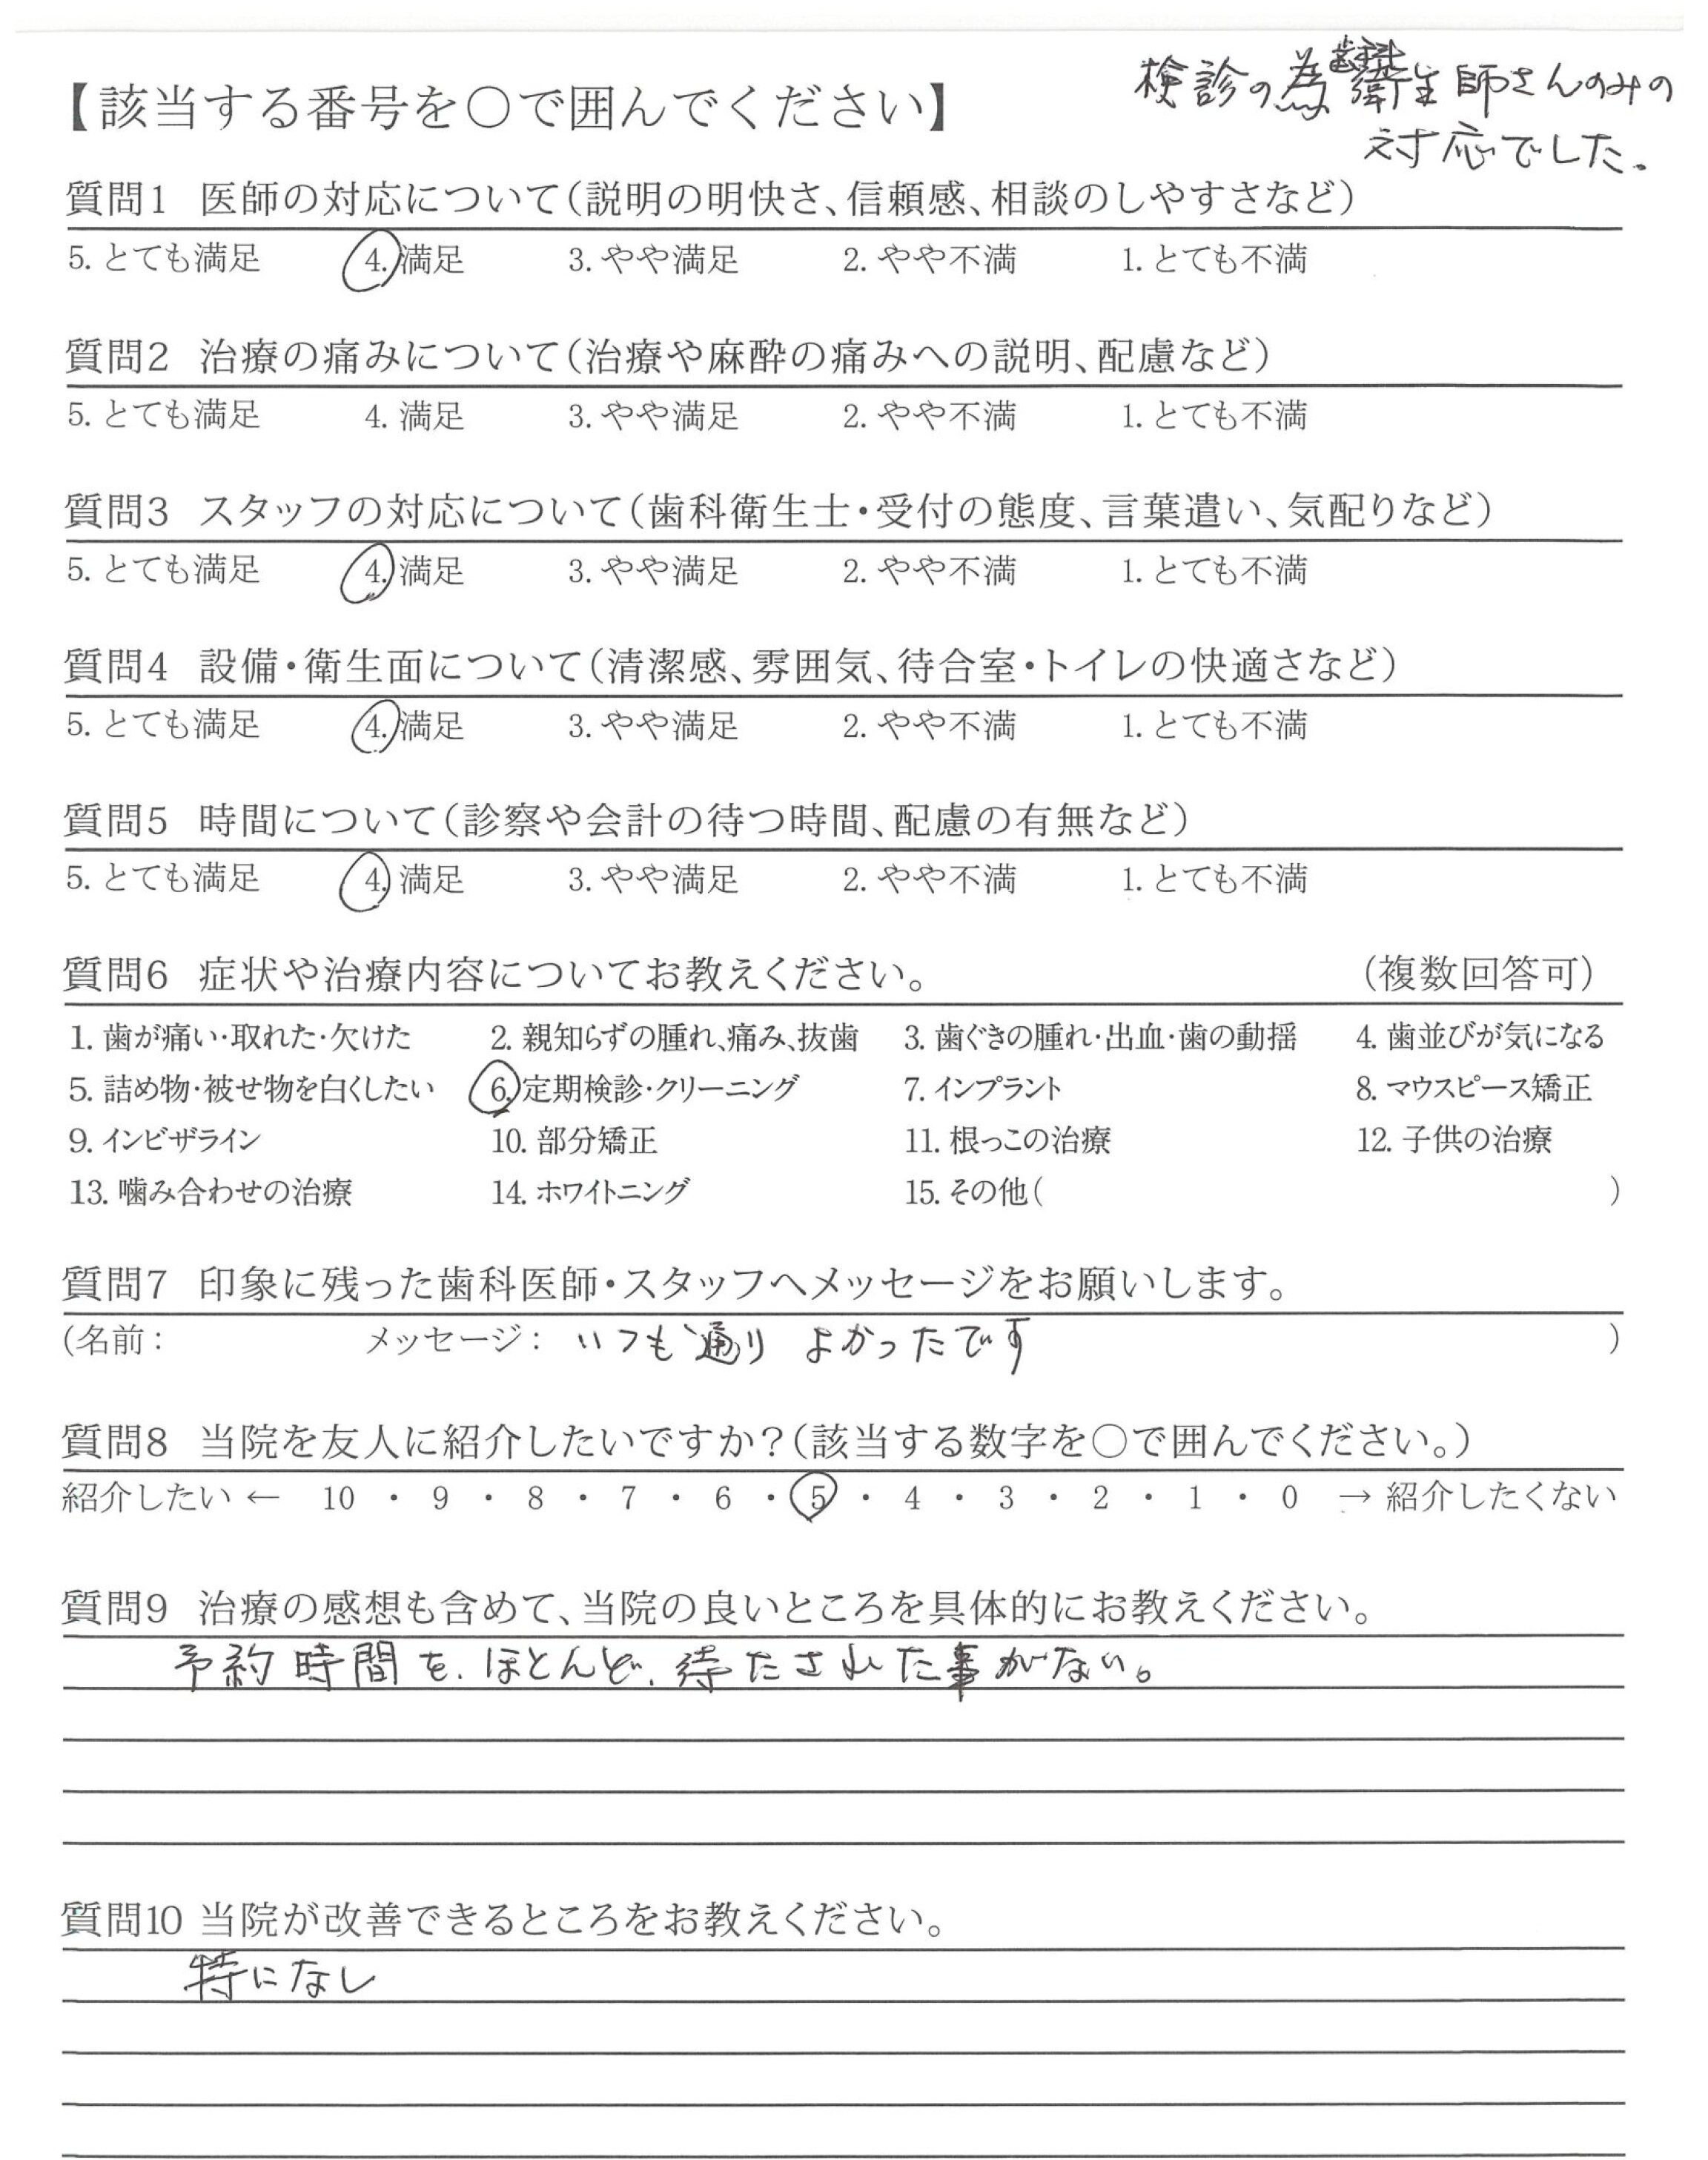 検診の為歯科衛生師さんのみの
対応でした。
【該当する番号を○で囲んでください】
質問1 医師の対応について(説明の明快さ、信頼感、相談のしやすさなど)
5. とても満足 4. 満足 3. やや満足 2. やや不満 1. とても不満
質問2 治療の痛みについて(治療や麻酔の痛みへの説明、配慮など)
5. とても満足 4. 満足 3. やや満足 2. やや不満 1. とても不満
質問3 スタッフの対応について(歯科衛生士・受付の態度、言葉遣い、気配りなど)
5. とても満足 4. 満足 3. やや満足 2. やや不満 1. とても不満
質問4 設備・衛生面について(清潔感、雰囲気、待合室・トイレの快適さなど)
5. とても満足 4. 満足 3. やや満足 2. やや不満 1. とても不満
質問5 時間について(診察や会計の待つ時間、配慮の有無など)
5. とても満足 4. 満足 3. やや満足 2. やや不満 1. とても不満
質問6 症状や治療内容についてお教えください。 (複数回答可)
1. 歯が痛い・取れた・欠けた 2. 親知らずの腫れ、痛み、抜歯 3. 歯ぐきの腫れ・出血・歯の動揺 4. 歯並びが気になる
5. 詰め物・被せ物を白くしたい 6. 定期検診・クリーニング 7. インプラント 8. マウスピース矯正
9. インビザライン 10. 部分矯正 11. 根っこの治療 12. 子供の治療
13. 噛み合わせの治療 14. ホワイトニング 15. その他( )
質問7 印象に残った歯科医師・スタッフへメッセージをお願いします。
(名前: メッセージ: いつも通り よかったです )
質問8 当院を友人に紹介したいですか?(該当する数字を○で囲んでください。)
紹介したい ← 10 ・ 9 ・ 8 ・ 7 ・ 6 ・ 5 ・ 4 ・ 3 ・ 2 ・ 1 ・ 0 → 紹介したくない
質問9 治療の感想も含めて、当院の良いところを具体的にお教えください。
予約時間を、ほとんど、待たされた事がない。
質問10 当院が改善できるところをお教えください。
特になし